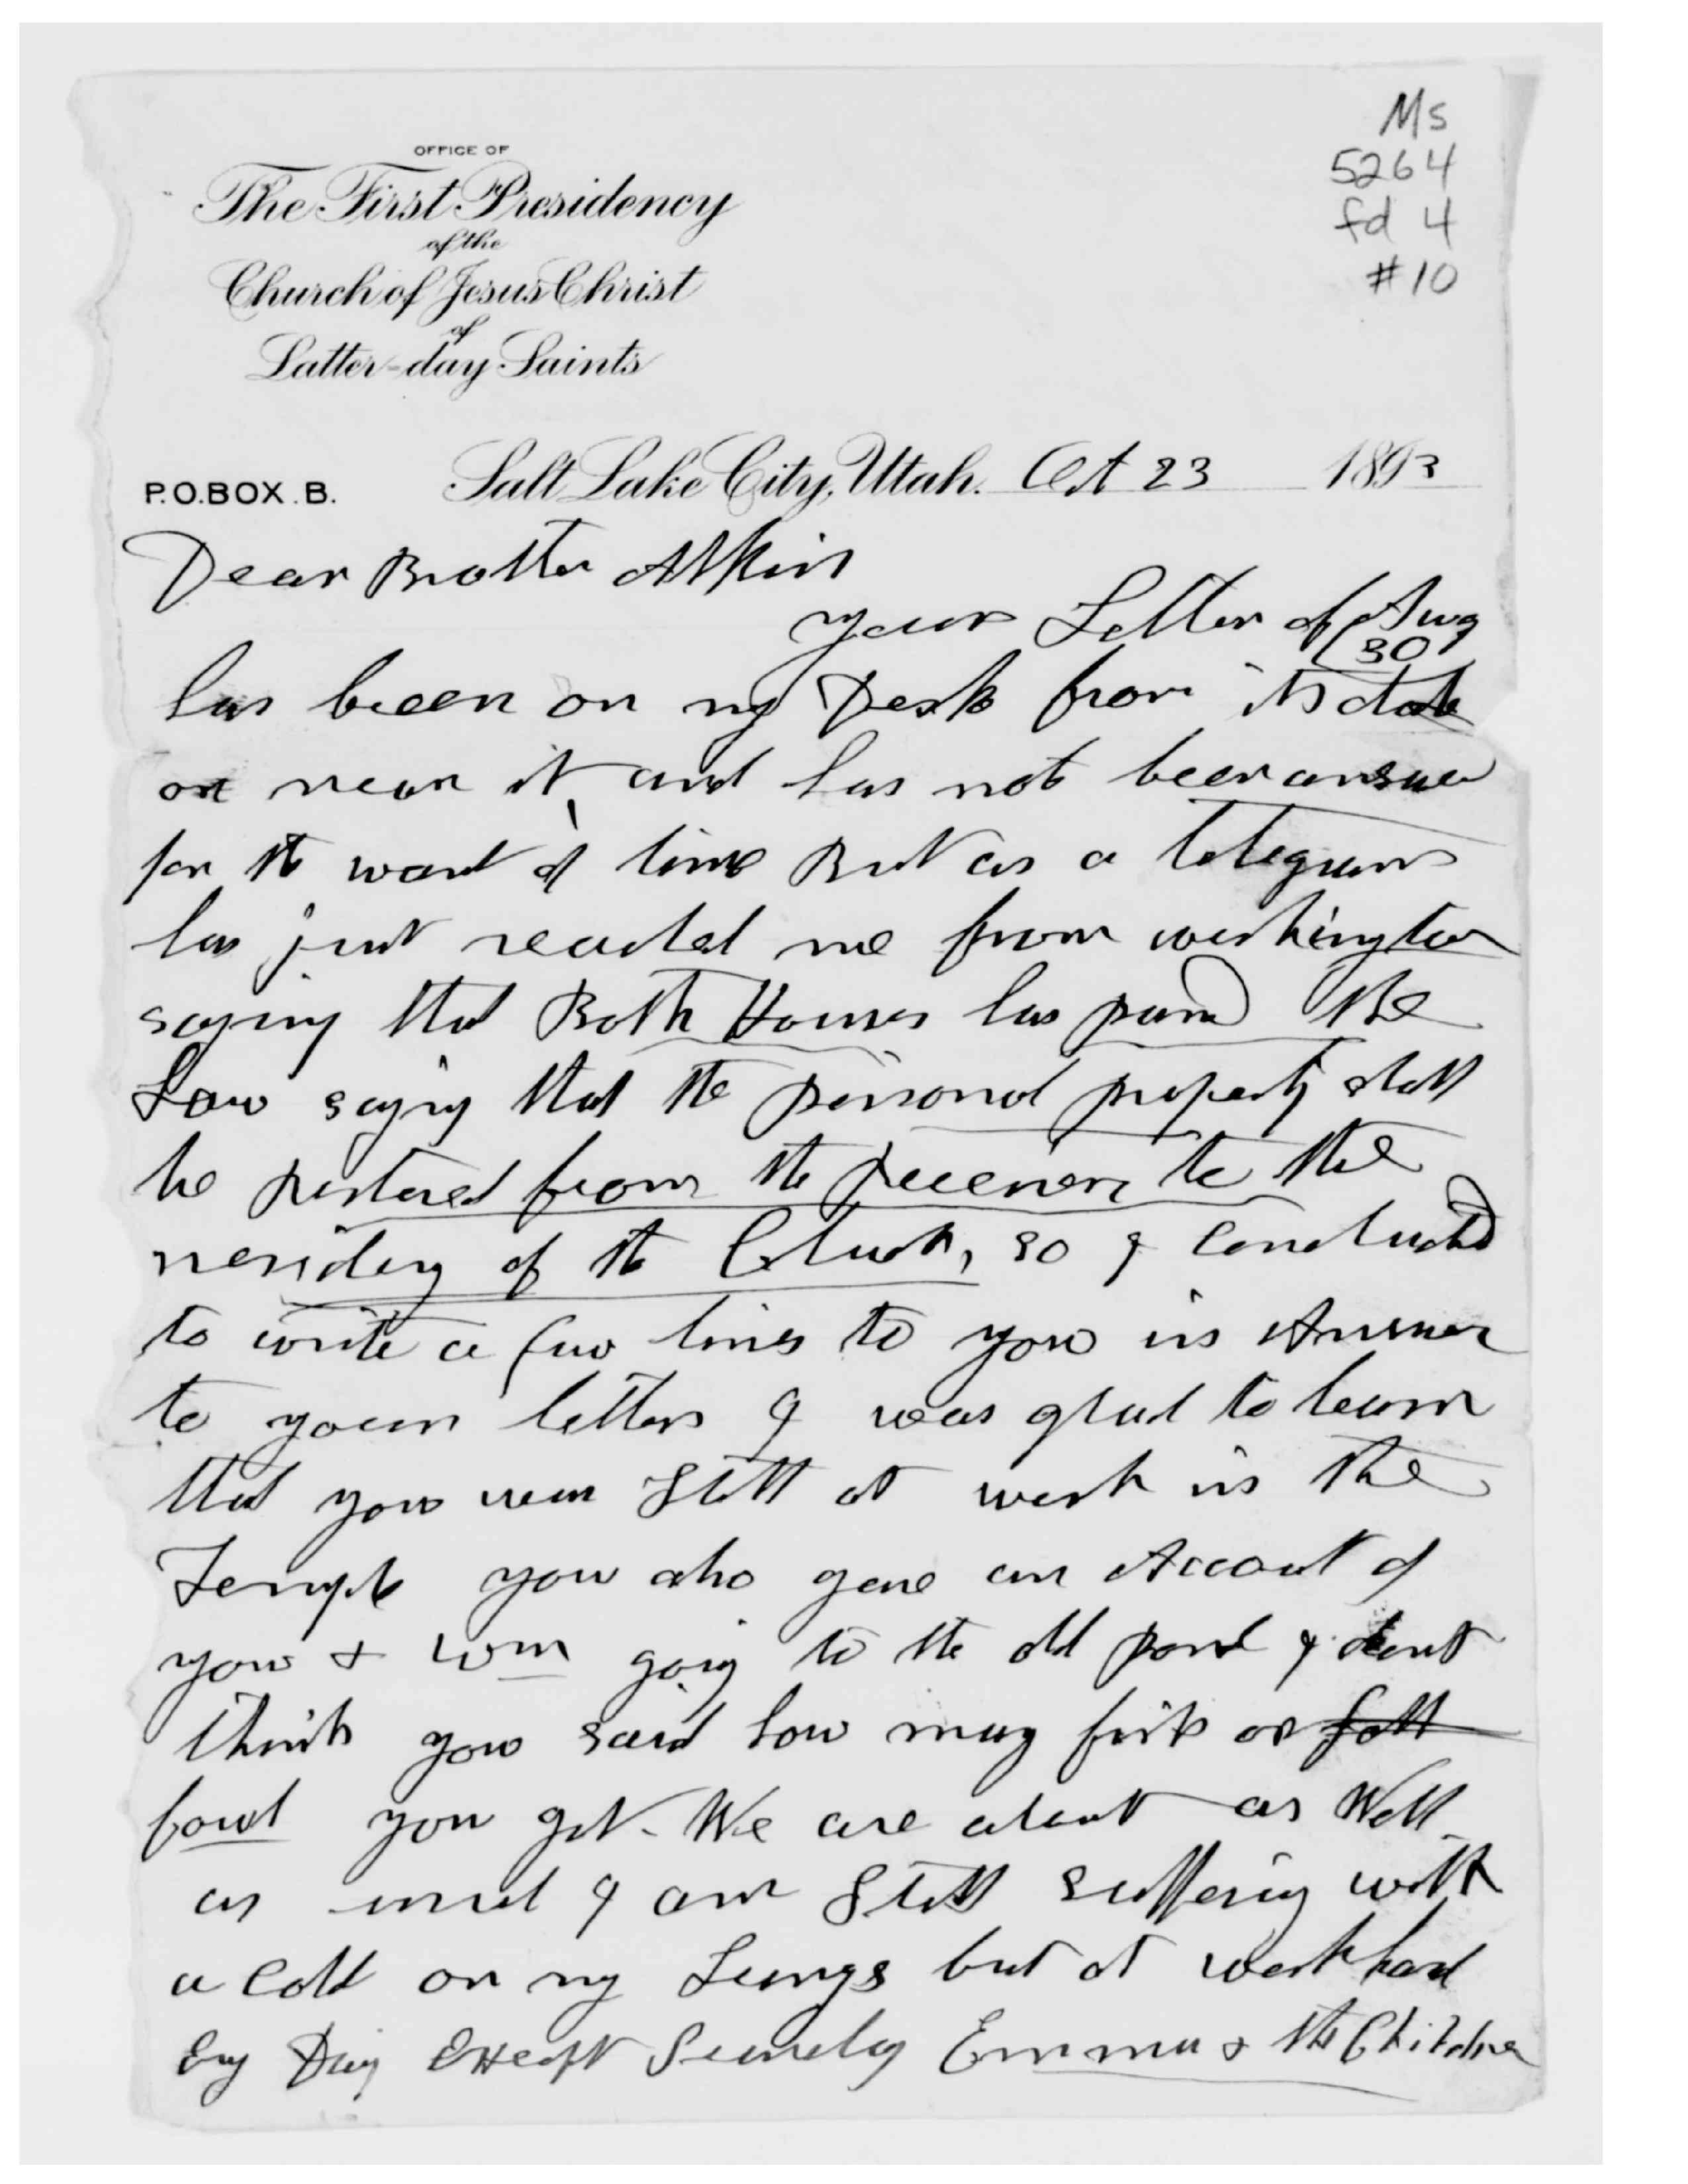 Ms
5264
fd 4
#10
OFFICE OF
The First Presidency
of the
Church of Jesus Christ
of
Latter-day Saints
P.O. BOX B. Salt Lake City, Utah. Oct 23 1893
Dear Brother Atkin
your Letter of Aug
30
has been on my Desk from its date
or near it and has not been answe
for the want of time But as a telegram
has just reached me from washington
saying that Both Houses has passed the
Law saying that the personal property shall
be restored from the Receiver to the
presidency of the Church, so I concluded
to write a few lines to you in Answer
to your letters I was glad to learn
that you were Still at work in the
Temple you also gave an Account of
you & Wm going to the old pond I dont
think you said how many fish or
fowl you got. We are about as Well
as usual I am Still suffering with
a Cold on my Lungs but at work hard
Evry Day Except Sunday Emma & the Children